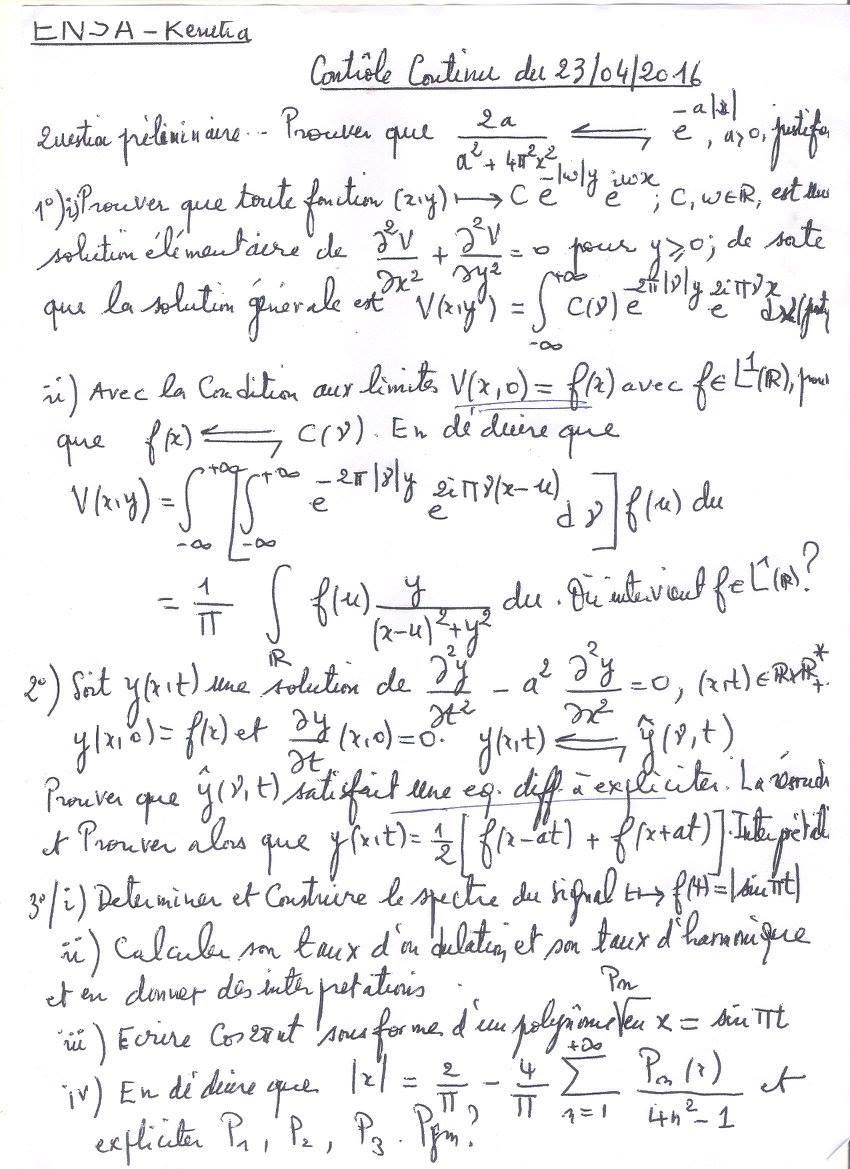 ENSA - Kenitra
Contrôle Continu du 23/04/2016
Question préliminaire.. Prouver que 2a / (a² + 4π²x²) ⇌ e^{-a|x|}, a>0,
1°) i) Prouver que toute fonction (x,y) ⟼ C e^{-|ω|y} e^{iωx} ; C, ω∈ℝ, est une
solution élémentaire de ∂²V/∂x² + ∂²V/∂y² = 0 pour y ⩾ 0 ; de sorte
que la solution générale est V(x,y) = ∫_{-∞}^{+∞} C(ν) e^{-2π|ν|y} e^{2iπνx} dν
ii) Avec la Condition aux limites V(x,0) = f(x) avec f∈ L¹(ℝ),
que f(x) ⇌ C(ν). En déduire que
V(x,y) = ∫_{-∞}^{+∞} [ ∫_{-∞}^{+∞} e^{-2π|ν|y} e^{2iπν(x-u)} dν ] f(u) du
= 1/π ∫_ℝ f(u) y / ((x-u)² + y²) du. Où intervient f∈ L¹(ℝ)?
2°) Soit y(x,t) une solution de ∂²y/∂t² - a² ∂²y/∂x² = 0, (x,t) ∈ ℝ×ℝ₊*
y(x,0) = f(x) et ∂y/∂t (x,0) = 0. y(x,t) ⇌ ŷ(ν,t)
Prouver que ŷ(ν,t) satisfait une eq. diff. à expliciter. La
et Prouver alors que y(x,t) = 1/2 [ f(x-at) + f(x+at) ].
3°/ i) Determiner et Construire le spectre du signal t ⟼ f(t) = |sin πt|
ii) Calculer son taux d'ondulation, et son taux d'harmonique
et en donner des interpretations.
iii) Ecrire Cos 2πnt sous forme d'un polynôme Pn en x = sin πt
iv) En déduire que |x| = 2/π - 4/π ∑_{n=1}^{+∞} Pn(x) / (4n² - 1) et
expliciter P₁, P₂, P₃.